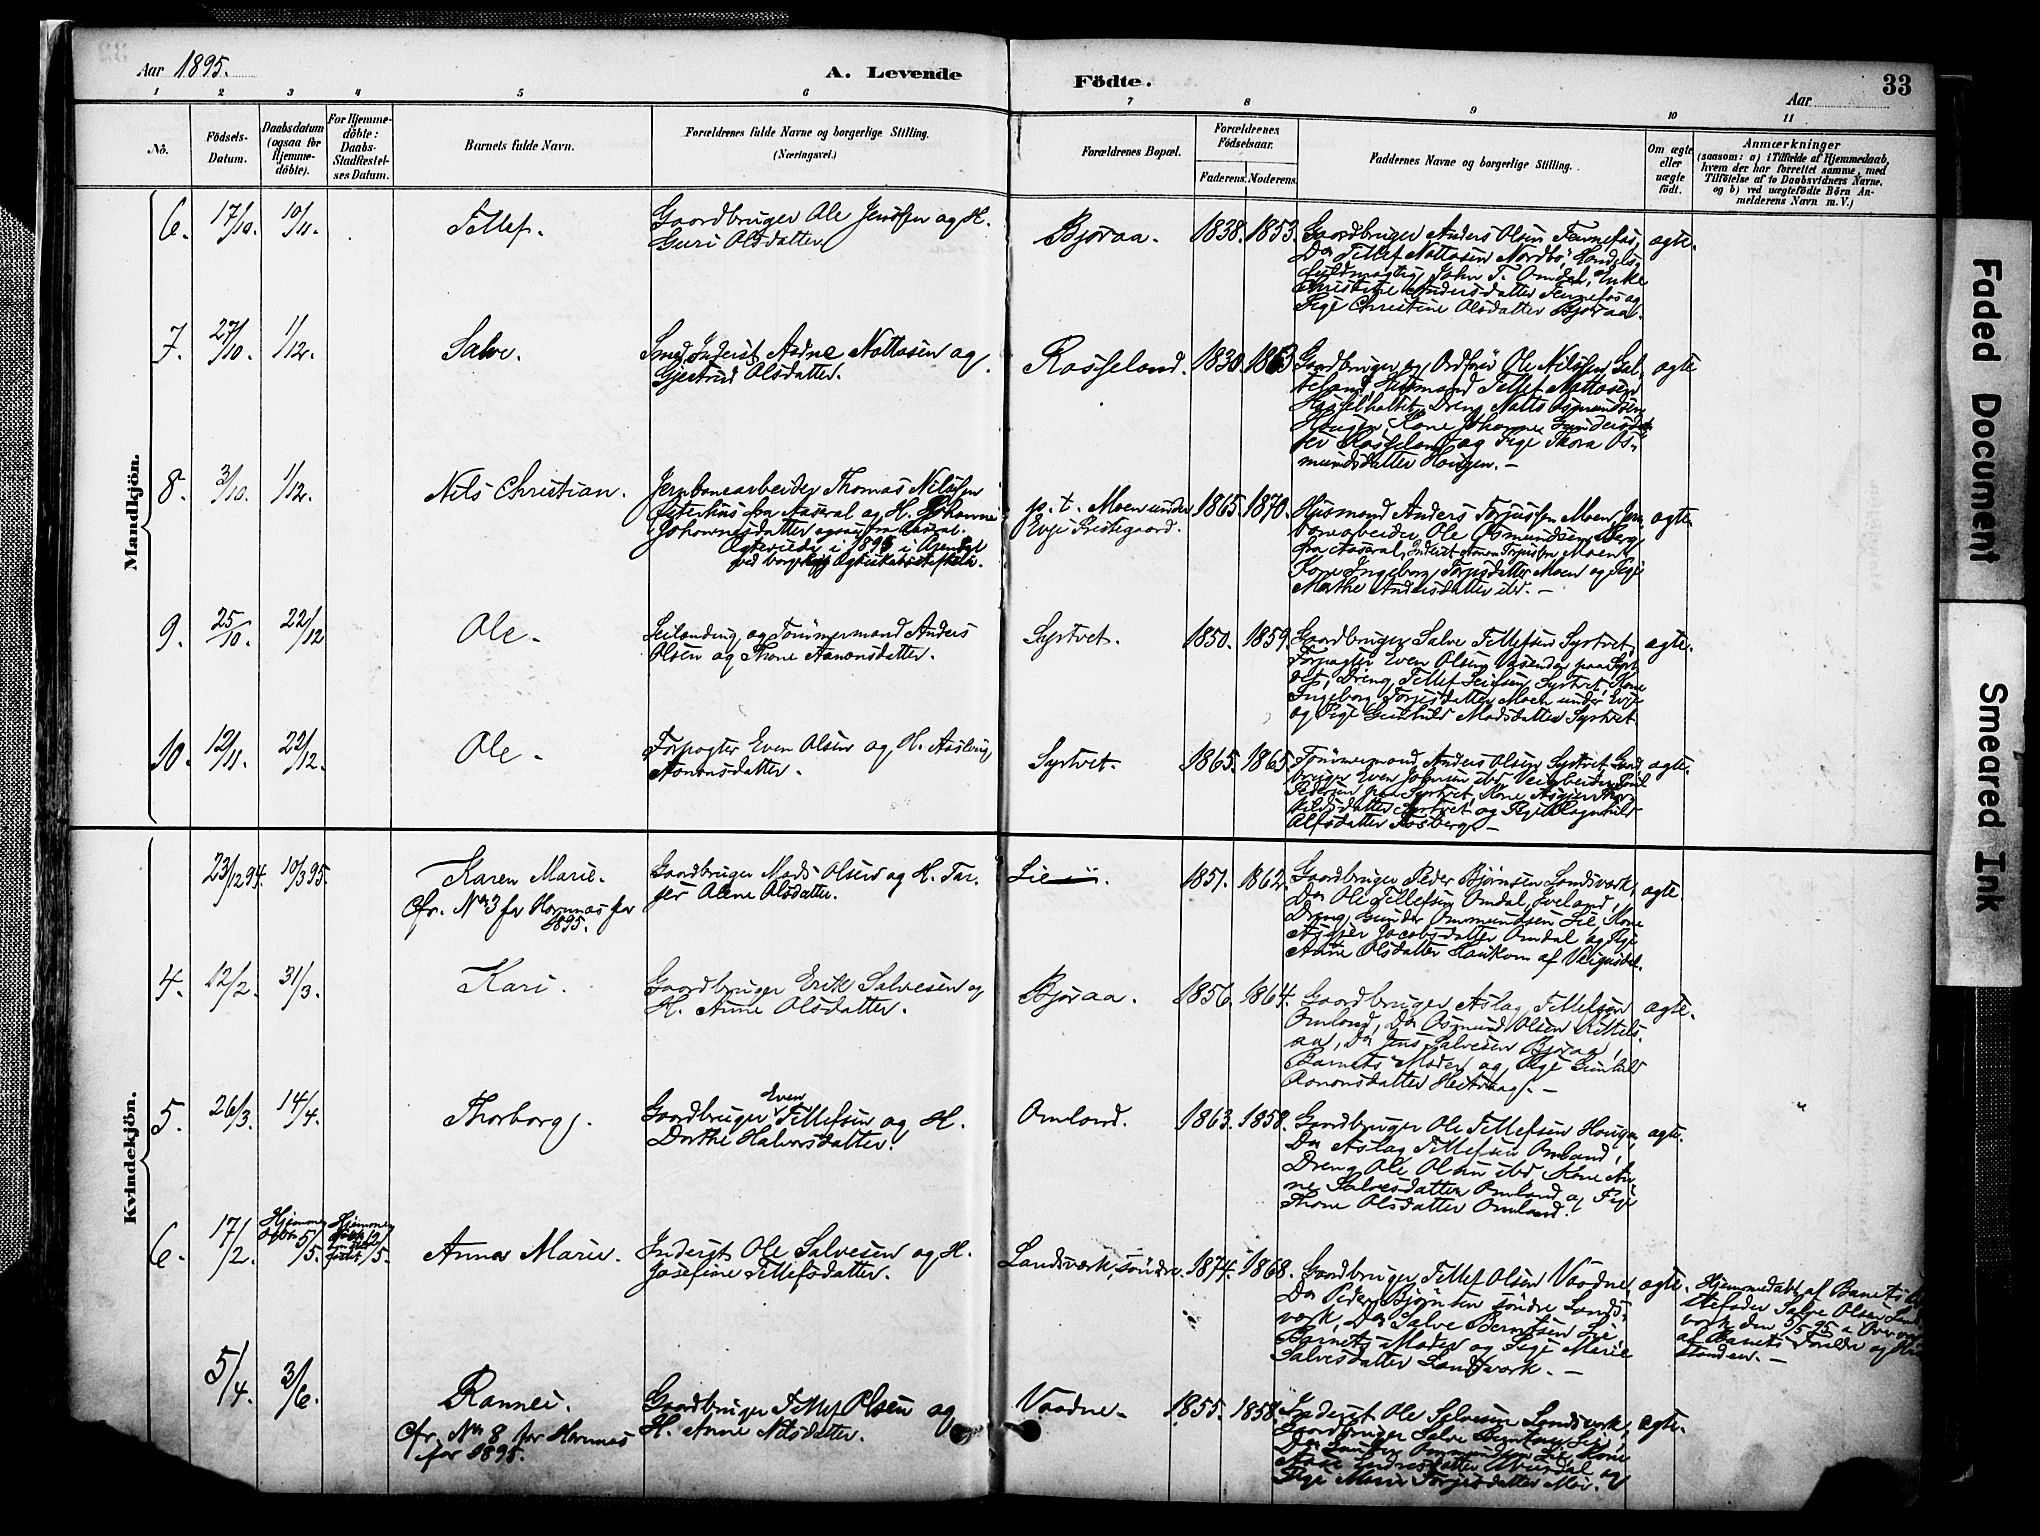 Aar 1895.
A. Levende
Födte.
Aar
33
1 2 3 4 5 6 7 8 9 10 11
No.
Födsels-
Datum.
Daabsdatum
(ogsaa for
Hjemme-
döbte).
For Hjemme-
döbte:
Daabs-
Stadfæstel-
ses Datum.
Barnets fulde Navn.
Forældrenes fulde Navne og borgerlige Stilling.
(Næringsvei.)
Forældrenes Bopæl.
Forældrenes
Födselsaar.
Faderens. Moderens.
Faddernes Navne og borgerlige Stilling.
Om ægte
eller
uægte
födt.
Anmærkninger
(saasom: a) i Tilfælde af Hjemmedaab,
hvem der har forrettet samme, med
Tilföielse af to Daabsvidners Navne,
og b) ved uægtefödte Börn An-
melderens Navn m. V.)
Mandkjön.
6. 17/10. 10/11.
Tellef.
Gaardbruger Ole Jensen og H.
Guri Olsdatter
Bjoraa.
1838. 1853.
Gaardbruger Anders Olsen Fennefos,
Do Tellef Nottosen Nordbö, Handels-
fuldmægtig John T. Omdal, Enke
Christine Andersdatter Fennefos og
Pige Christine Olsdatter Bjoraa.
ægte.
7. 27/10. 1/12.
Salve.
Smed, Inderst Aadne Nottosen og
Gjertrud Olsdatter.
Rosseland.
1830. 1863
Gaardbruger og Ordförer Ole Nilssen
Husmand Tellef Nottosen
Dreng Notto Osmundsen
Hougen, Kone Johanne Gundersdat-
ter Rosseland og Pige Thora Os-
mundsdatter Hougen. –
ægte
8. 3/10. 1/12.
Nils Christian.
Jernbanearbeider Thomas Nilssen
fra Aaseral og H. Johanne
Johannesdatter ogsaa fra Aaseral.
Ægteviede i 1895 i Arendal
ved borgerlig Ægteskabsstiftelse.
p. t. Moen under
Evje Prestegaard.
1865. 1870.
Husmand Anders Torjussen Moen, Jern-
banearbeider Ole Osmundsen Berg
fra Aaseral, Inderst Torjussen Moen
Kone Ingeborg Torjusdatter Moen og Pige
Marthe Andersdatter ibd. –
ægte
9. 25/10. 22/12
Ole.
og Tömmermand Anders
Olsen og Thone Aanonsdatter.
Syrtvet.
1850. 1859.
Gaardbruger Salve Tellefsen Syrtvet,
Forpagter Even Olsen paa Syrt-
vet, Dreng Tellef Syrtvet, Kone
Ingeborg Torjusdatter Moen under Evje
og Pige Gunhild Madsdatter Syrtvet
ægte.
10. 12/11. 22/12.
Ole.
Forpagter Even Olsen og H. Aaslaug
Aanonsdatter.
Syrtvet.
1865. 1865.
Tömmermand Anders Olsen Syrtvet, Gaard-
bruger Even Johnsen ibd, Veiarbeider
Pedersen paa Syrtvet, Kone
Syrtvet og Pige Ragnhild
Alfsdatter Fosberg –
ægte.
Kvindekjön.
23/12 94. 10/3 95.
Karen Marie.
Cfr. No 3 for Hornnes for
1895.
Gaardbruger Mads Olsen og H. Tar-
jer Alene Olsdatter.
Lie
1851. 1862.
Gaardbruger Peder Björnsen Landsværk,
Do Ole Tellefsen Omdal, Iveland,
Dreng Gunder Ommundsen Lie, Kone
Jacobsdatter Omdal og Pige
Anne Olsdatter af
ægte.
4. 12/2. 31/3.
Kari.
Gaardbruger Erik Salvesen og
H. Anne Olsdatter.
Bjoraa.
1856. 1864.
Gaardbruger Aslag Tellefsen
Omland, Do Osmund Olsen Kittels-
aa, Do Jens Salvesen Bjoraa,
Barnets Moder og Pige Gunhild
Aanonsdatter –
ægte.
5. 26/3. 14/4.
Thorborg.
Gaardbruger Even Tellefsen og H.
Dorthe Halvorsdatter.
Omland.
1863. 1858.
Gaardbruger Ole Tellefsen Hougen,
Do Aslag Tellefsen Omland,
Dreng Ole Olsen ibd, Kone An-
ne Salvesdatter Omland og Pige
Thone Olsdatter Omland.
ægte.
6. 17/2. 5/5. 12/5.
Anna Marie.
Inderst Ole Salvesen og H.
Josefine Tellefsdatter.
Landsværk, söndre
1874. 1868.
Gaardbruger Tellef Olsen Vaadne,
Do Peder Björnsen söndre Lands-
værk, Do Salve Berntsen Lie
Barnets Moder og Pige Marie
Salvesdatter Landsværk. –
ægte.
Hjemmedøbt af Barnets
Salve Olsen Lands-
værk den 5/5 95 i Overvær
af Barnets Forældre og
standen. –
5/4. 3/6.
Rannei.
Cfr. No 8 for Hornnes
for 1895.
Gaardbruger Tellef Olsen og
H. Anne Nilsdatter.
Vaadne.
1855. 1858.
Inderst Ole Salvesen Landsværk,
Gaardbruger Salve Berntsen Lie,
Do Gunder Ommundsen Lie, Kone
og
Pige Maria Torjusdatter Moe.
ægte.
Faded Document
Smeared Ink